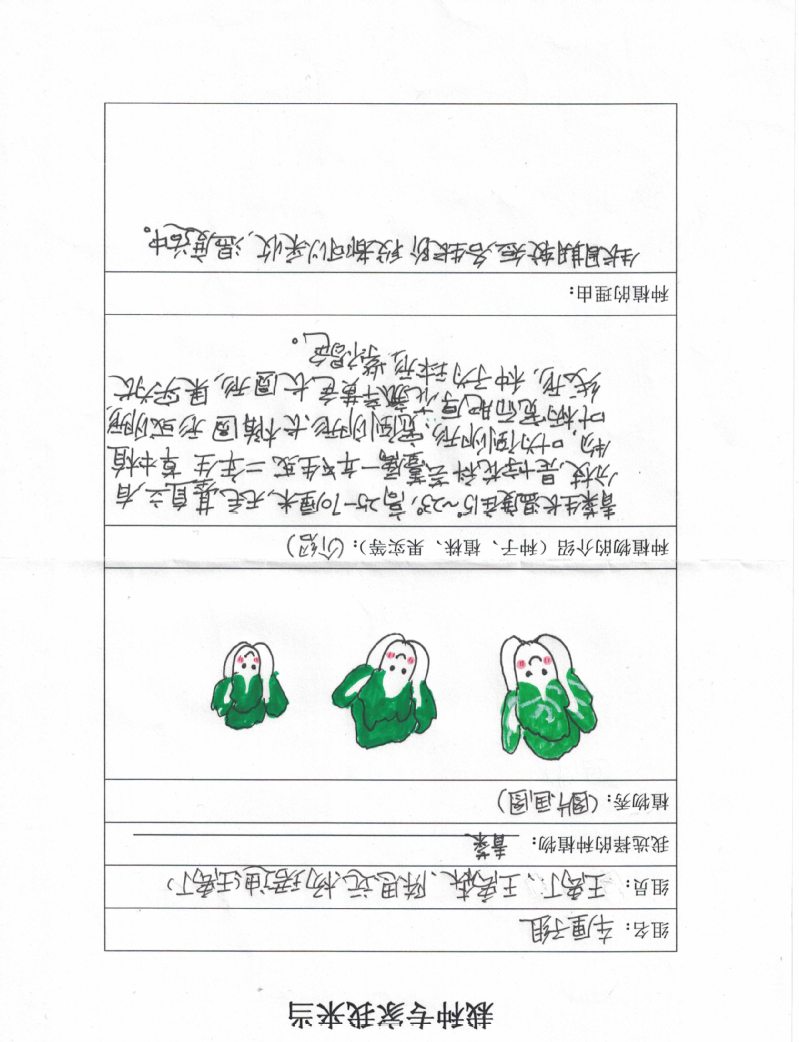 栽种专家我来当
组名：车厘子组
组员：王
我选择的种植物：青菜
植物秀：（图片、画图）
种植物的介绍（种子、植株、果实等）：（介绍）
青菜生长温度在15°~23°，高25-70厘米，无毛，基直立，有
分枝，是十字花科芸薹属一年生或二年生草本植
物，叶为倒卵形，宽倒卵形、长椭圆形或卵形，
叶柄宽而肥厚，花浅黄色长圆形，果实为长
线形，种子为球形，紫褐色。
种植的理由：
生长周期较短，各生长阶段都可以采收，温度适中。